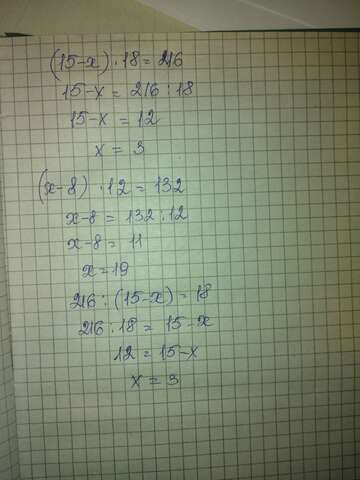 (15-x)·18=216
15-x = 216:18
15-x = 12
x = 3
(x-8)·12=132
x-8 = 132:12
x-8 = 11
x=19
216:(15-x)=18
216:18 = 15-x
12 = 15-x
x = 3